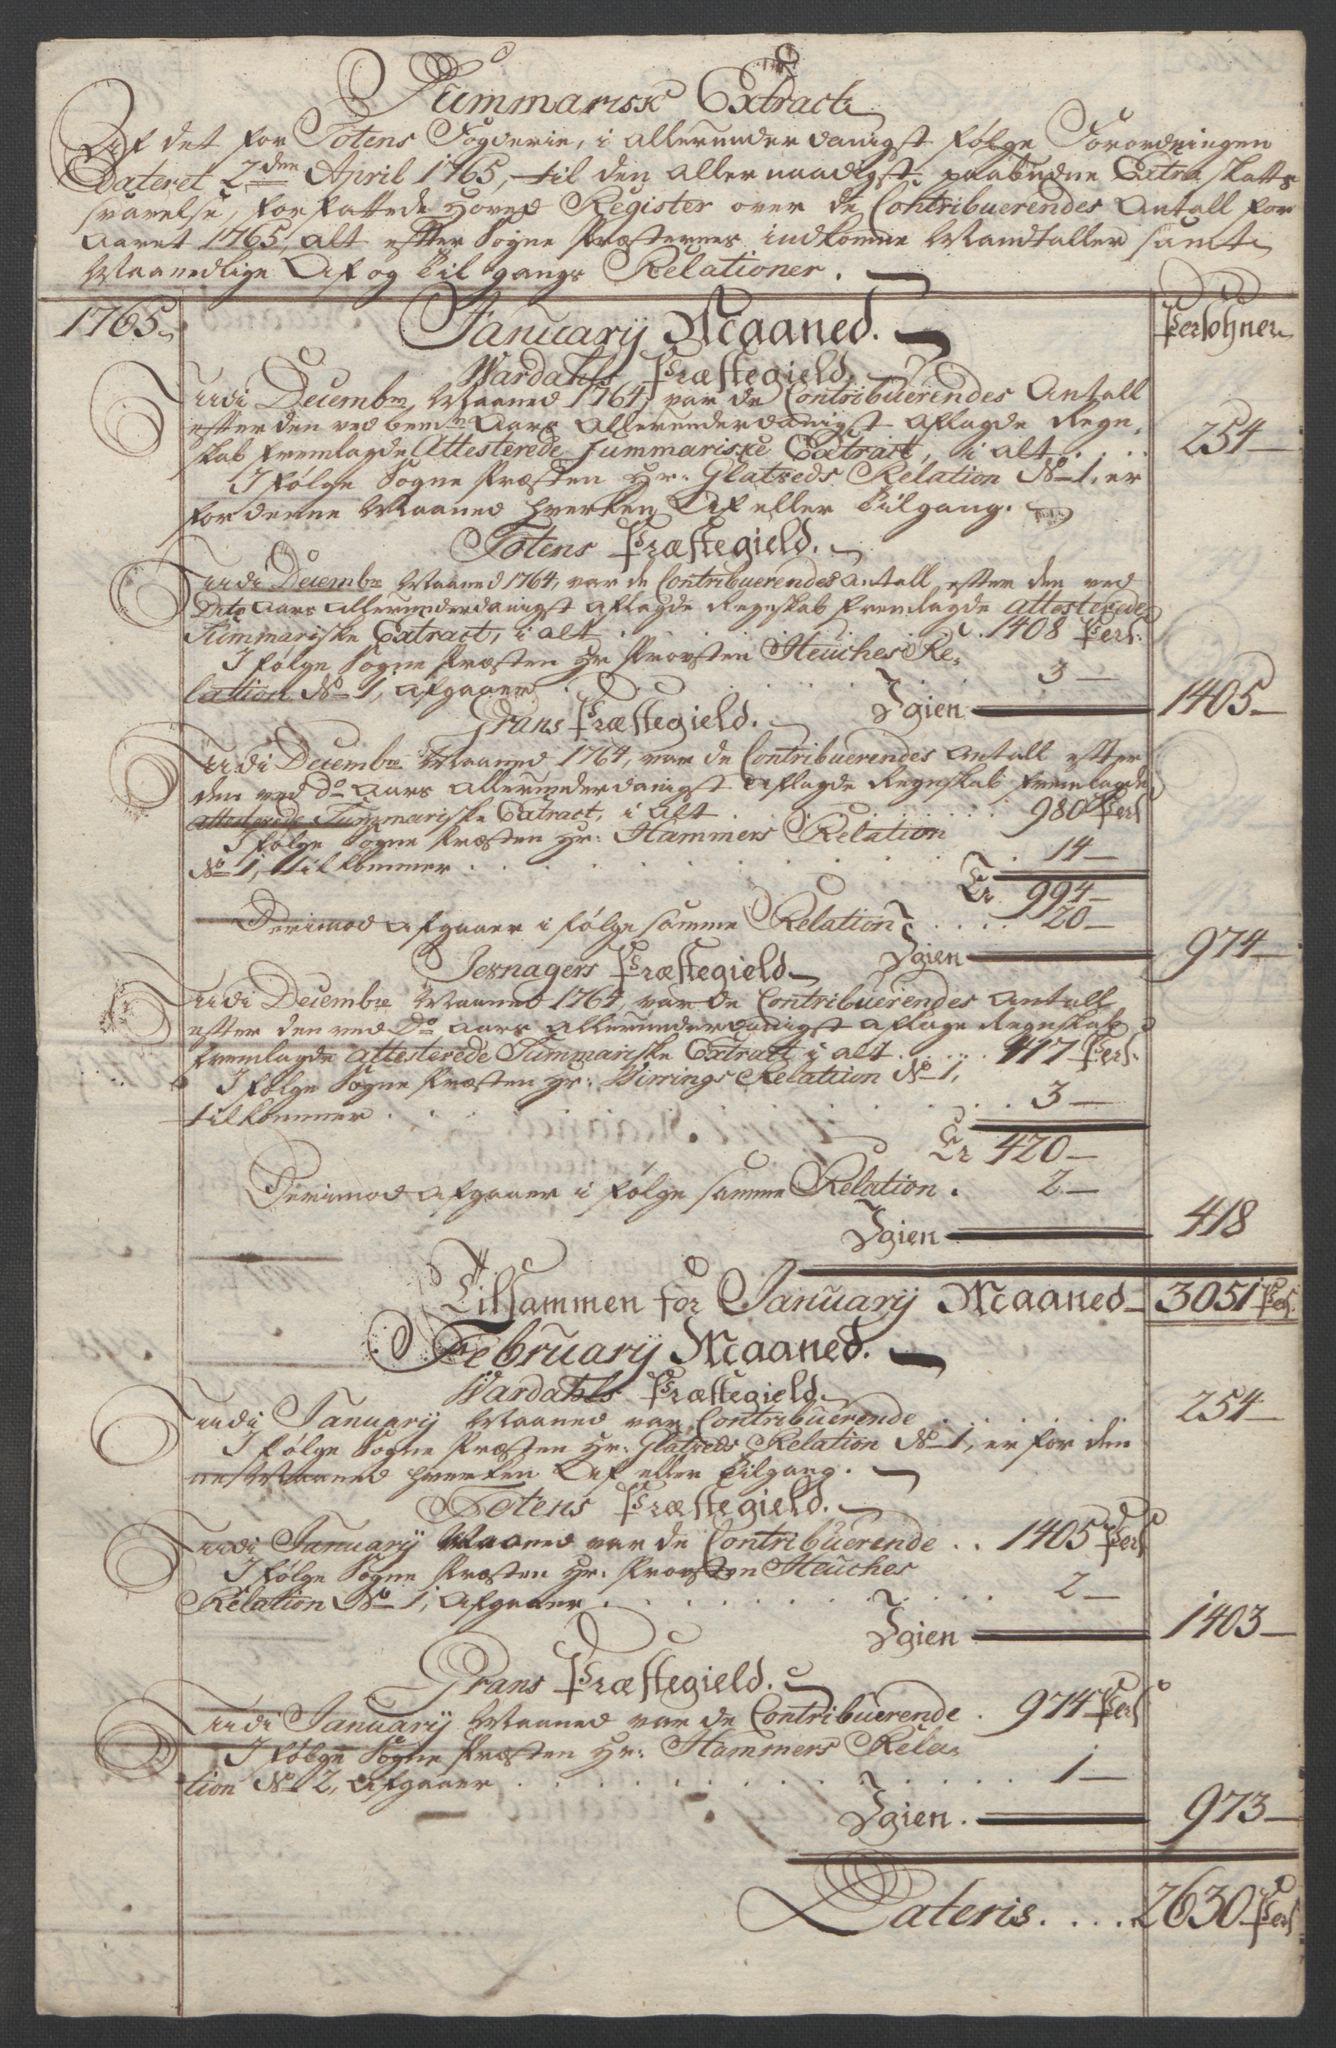 Summarisk Extract
Af det for Totens Fogderie, i allerunderdanigst følge Forordningen
dateret 2den April 1765, til den allernaadigst paabudne Extra Skatts
svarelse, forfattede Hoved Register over de Contribuerendes Antall for
Aaret 1765, alt efter Sogne Præsternes indkomne Mandtaller samt
Maanedlige Af og Til gangs Relationer.
1765. January Maaned. Persohner
Wardahls Præstegield.
Udi Decembr Maaned 1764, var de Contribuerendes Antall
efter den ved bemte Aars allerunderdanigst aflagde Regn-
skab fremlagde Attesterede Summariske Extract, i alt . . . 254
I følge Sogne Præsten Hr: Glatveds Relation No 1, er
for denne Maaned hverken Af eller Tilgang.
Totens Præstegield.
Udi Decembr Maaned 1764, var de Contribuerendes Antall, efter den ved
Dito Aars allerunderdanigst aflagde Regnskab fremlagde attesterede
Summariske Extract, i alt . . . 1408 Pers:
I følge Sogne Præsten Hr Provsten Heuches Re-
lation No 1, afgaaer . . . 3
Igien 1405
Grans Præstegield.
Udi Decembr Maaned 1764, var de Contribuerendes Antall efter
den ved Do Aars allerunderdanigst aflagde Regnskab fremlagde
attesterede Summariske Extract, i alt . . . 980 Pers
I følge Sogne Præsten Hr: Hammers Relation
No 1, tilkommer . . . 14
Er 994
Derimod afgaaer i følge samme Relation . . . 20
Igien 974
Jevnagers Præstegield
Udi Decembr Maaned 1764, var de Contribuerendes Antall
efter den ved Do Aars allerunderdanigst aflage Regnskab
fremlagde attesterede Summariske Extract i alt . . . 417 Pers:
I følge Sogne Præsten Hr: Wirrings Relation No 1,
tilkommer . . . 3
Er 420
Derimod afgaaer i følge samme Relation . 2
Igien 418
Tilsammen for January Maaned 3051 Pers.
February Maaned.
Wardahls Præstegield
Udi January Maaned var Contribuerende . . . 254
I følge Sogne Præsten Hr: Glatveds Relation No 1, er for den
ne Maaned hverken Af eller Tilgang.
Totens Præstegield.
Udi January Maaned var de Contribuerende . . 1405 Pers
I følge Sogne Præsten Hr: Provsten Heuches
Relation No 1, afgaaer . . . 2
Igien 1403
Grans Præstegield.
Udi January Maaned var de Contribuerende . 974 Pers
I følge Sogne Præsten Hr: Hammers Rela-
tion No 2, afgaaer . . . 1
Igien. 973
Lateris. . . . . 2630 Pers